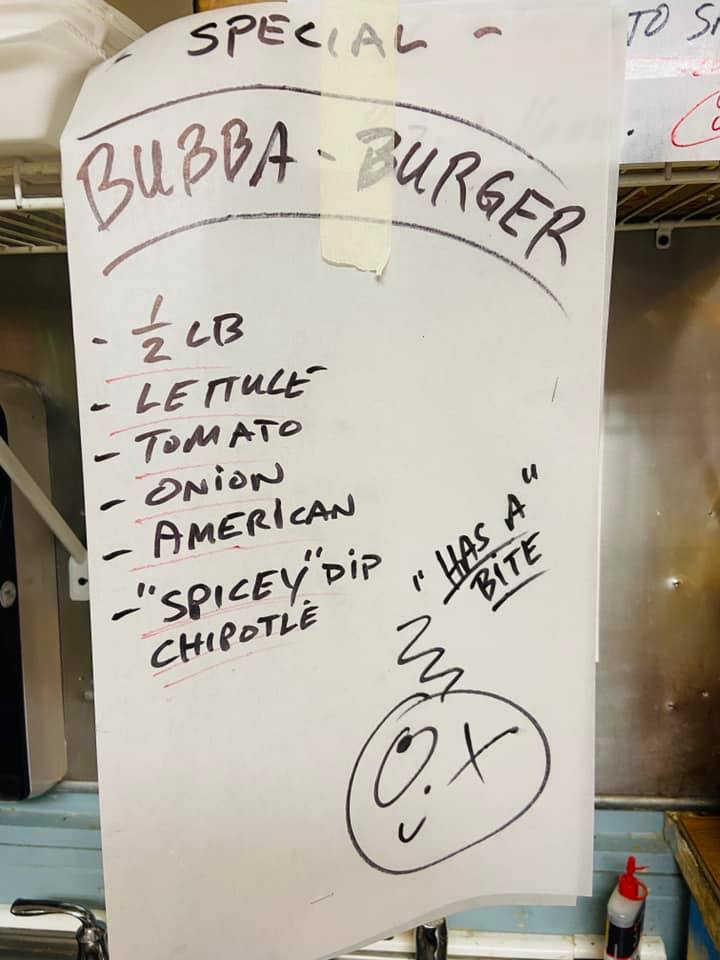 - SPECIAL -
BUBBA-BURGER
- 1/2 LB
- LETTUCE
- TOMATO
- ONION
- AMERICAN
- "SPICEY" DIP
CHIPOTLE
"HAS A"
BITE
TO